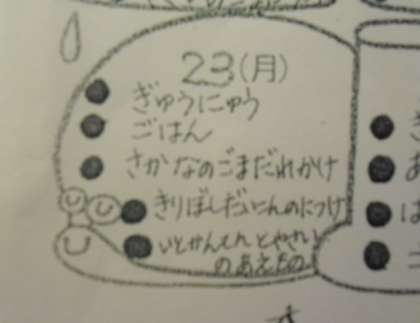 23(月)
ぎゅうにゅう
ごはん
さかなのごまだれかけ
きりぼしだいこんのにつけ
いとかんてんとやさい
のあえもの